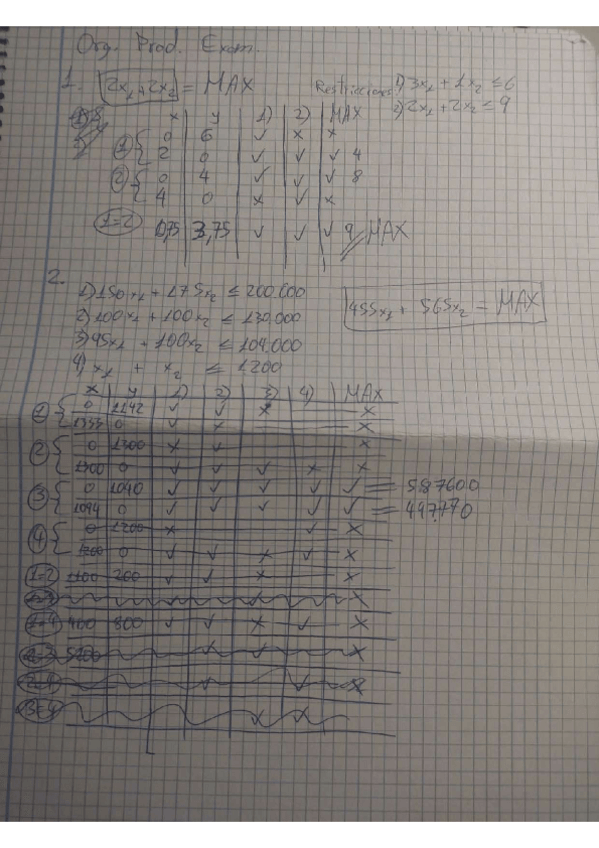 Org. Prod. Exam.
1. 2x₁+2x₂ = MAX Restricciones 1) 3x₁ + 1x₂ ≤ 6
2) 2x₁ + 2x₂ ≤ 9
x y 1) 2) MAX
① 0 6 ✓ x x
2 0 ✓ ✓ ✓ 4
② 0 4 ✓ ✓ ✓ 8
4 0 x ✓ x
1=2 0,75 3,75 ✓ ✓ ✓ 9 MAX
2.
1) 150x₁ + 175x₂ ≤ 200.000
2) 100x₁ + 100x₂ ≤ 130.000 455x₁ + 565x₂ = MAX
3) 95x₁ + 100x₂ ≤ 104.000
4) x₁ + x₂ ≤ 1200
x y 1) 2) 3) 4) MAX
① 0 1142 ✓ ✓ x x
1333 0 ✓ x x
② 0 1300 x ✓ x
1300 0 ✓ ✓ ✓ x x
③ 0 1040 ✓ ✓ ✓ ✓ ✓ = 587600
1094 0 ✓ ✓ ✓ ✓ ✓ = 497770
④ 0 1200 x ✓ x
1200 0 ✓ ✓ x ✓ x
1=2 1100 200 ✓ ✓ x x
1=3 ✓ ✓ x
1=4 400 800 ✓ ✓ x ✓ x
2=3 5200 ✓ ✓ x
2=4 ✓ ✓ x
3=4 x x